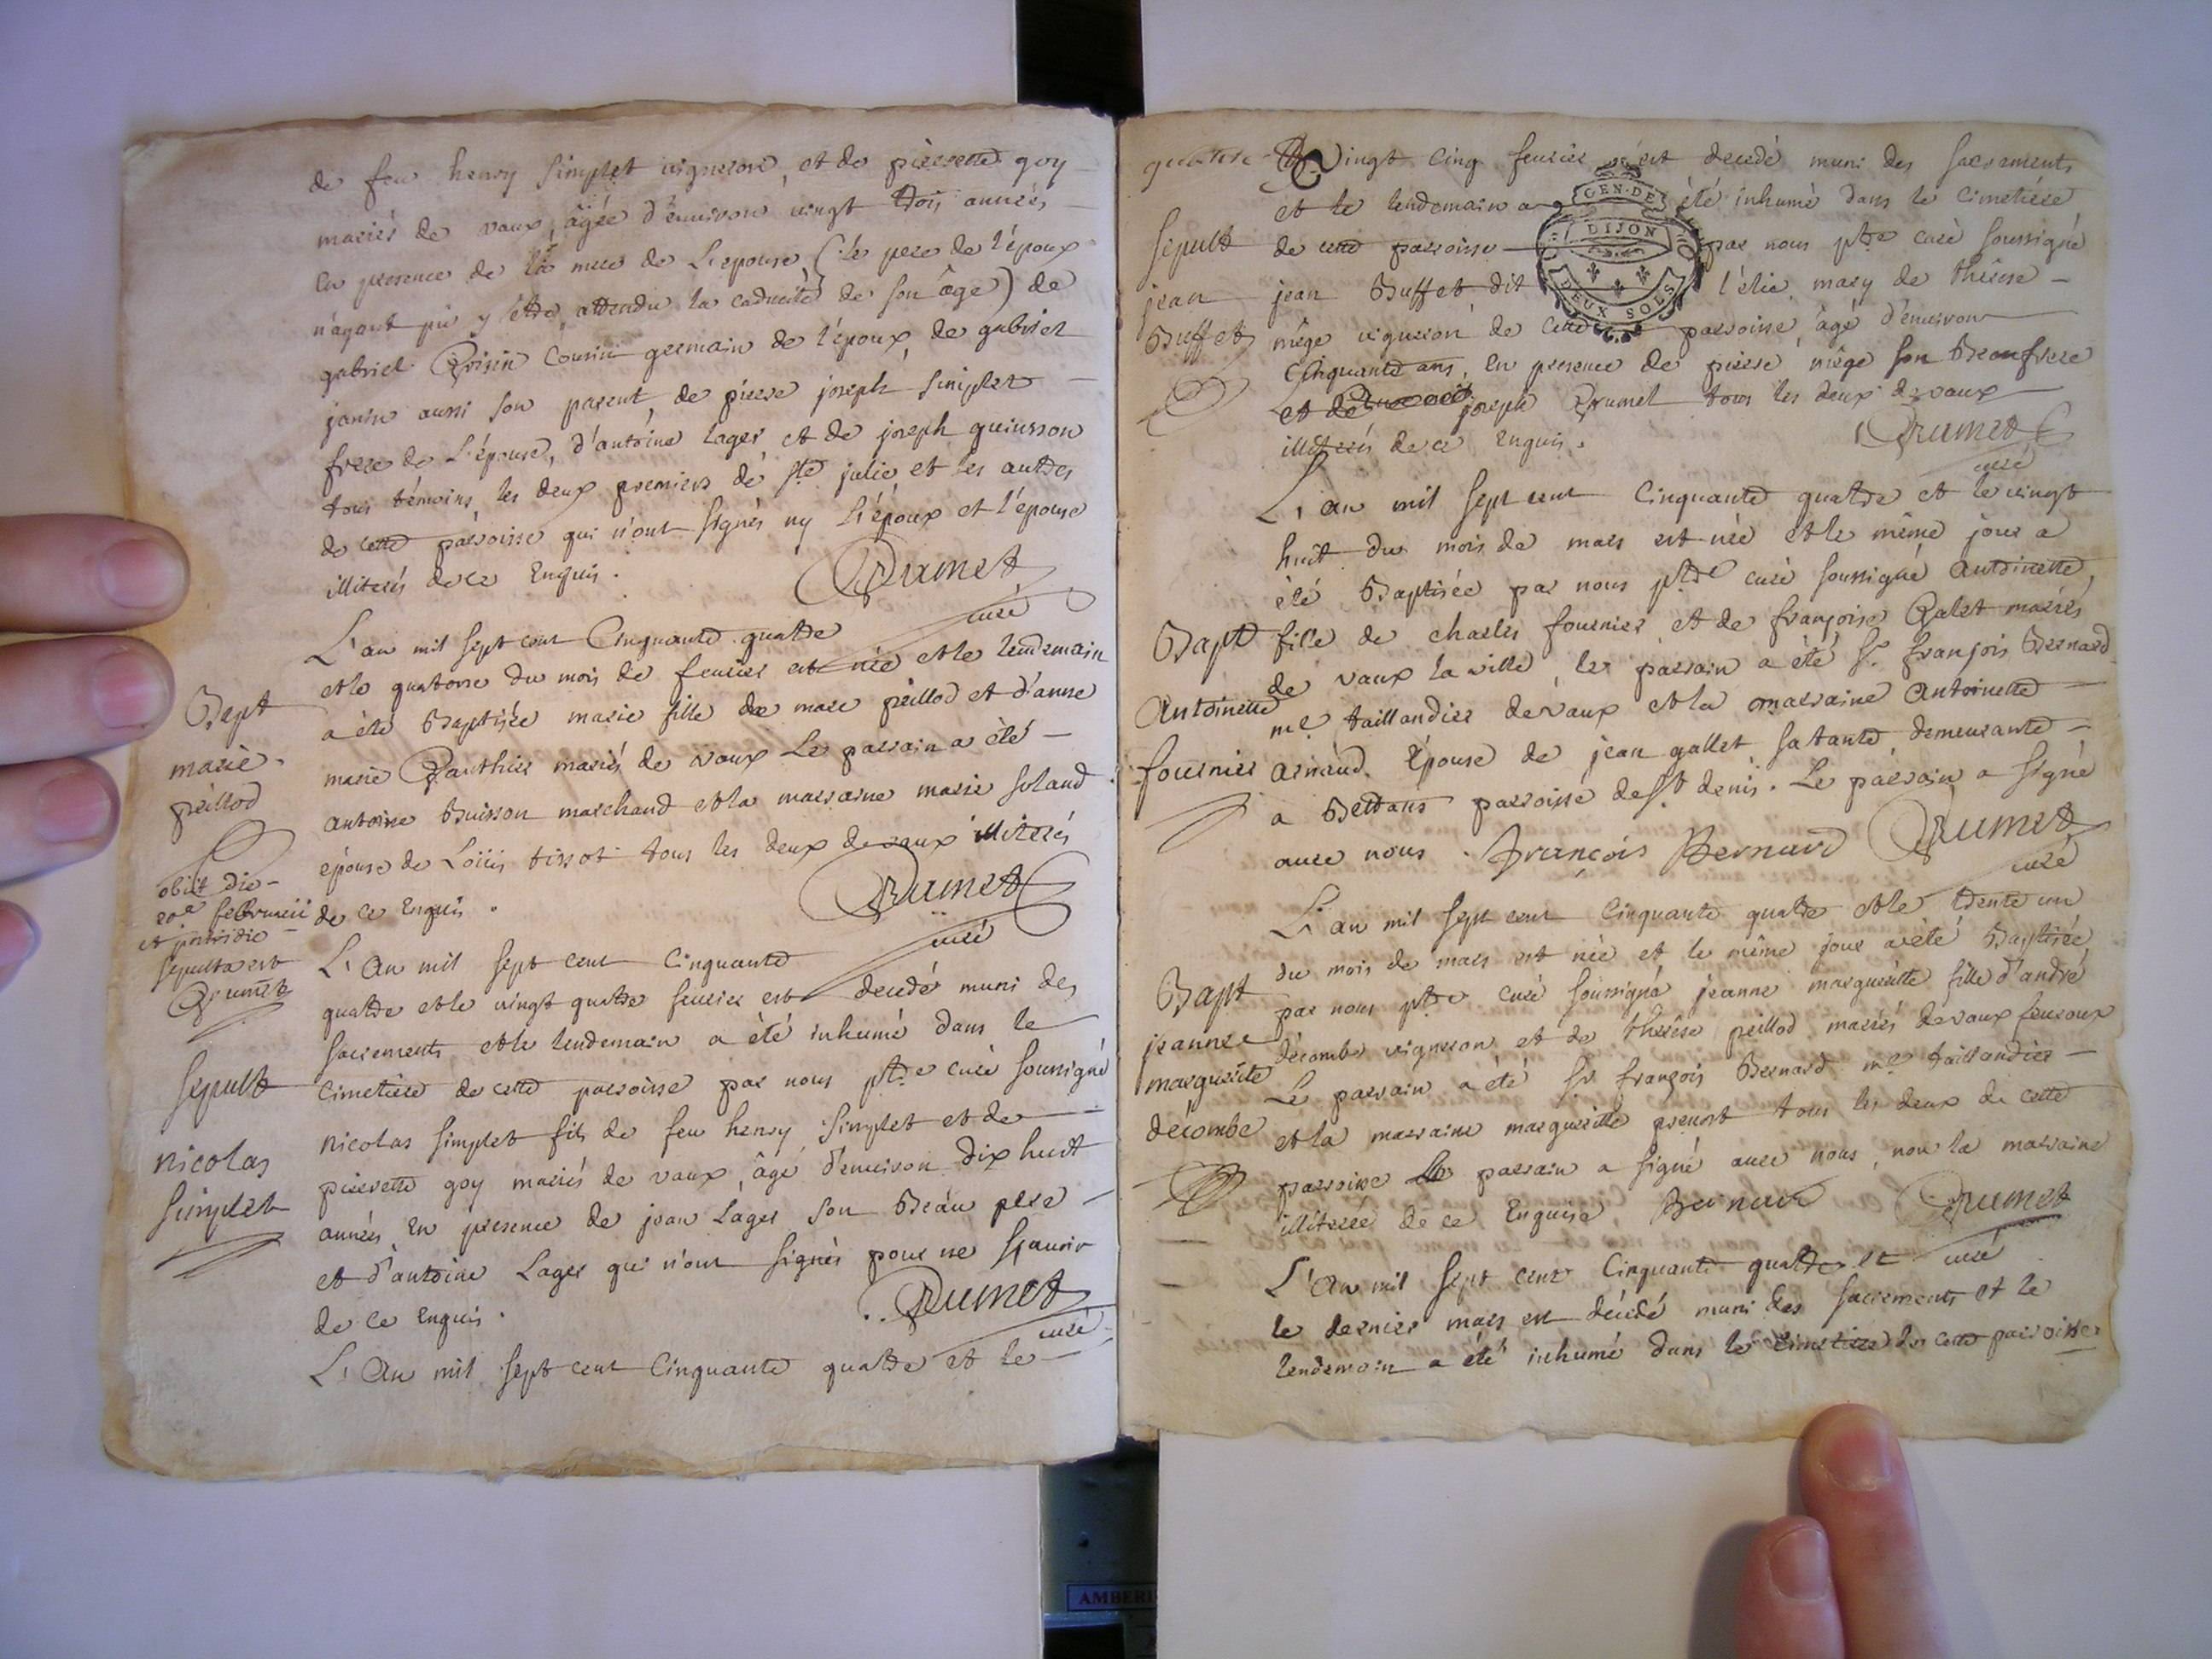 de feu henry simplet vigneron, et de pierrette goy
mariés de vaux, âgée d'enuiron vingt trois années
en presence de la mere de L'epouse (le pere de l'époux
n'ayant pu y être attendu la caducité de son âge) de
gabriel cousin germain de l'époux, de gabriel
janin aussi son parent, de pierre joseph simplet
frere de L'épouse, d'antoine lager et de joseph guinsson
tous témoins, les deux premiers de ste julie, et les autres
de cette parroisse qui n'ont signés ny L'époux et l'épouse
illiterés de ce Enquis.
Rumet
curé
L'an mil sept cent Cinquante quatre
et le quatorse du mois de feurier est née et le lendemain
a été Baptisée marie fille de marc peillod et d'anne
marie Gauthier mariés de vaux Le parrain a été
antoine Buisson marchand et la marraine marie soland
épouse de Loüis tissot tous les deux de vaux illiterés
de ce Enquis.
Rumet
curé
Bapt
marie
peillod
obiit die
20a februarii
et postridie
sepulta est
Rumet
L'An mil sept cent Cinquante
quatre et le vingt quatre feurier est decedé muni des
sacrements et le lendemain a été inhumé dans le
Cimetiere de cette parroisse par nous ptre curé soussigné
nicolas simplet fils de feu henry Simplet et de
pierrette goy mariés de vaux, âgé d'enuiron dix huit
années, en presence de jean Lager son Beau pere
et d'antoine Lager qui n'ont signés pour ne sçauoir
de ce enquis.
Rumet
curé
Sepult
nicolas
simplet
L'An mil sept cent Cinquante quatre et le
vingt cinq feurier est decedé muni des sacrements
et le lendemain a été inhumé dans le Cimetiere
de cette parroisse par nous ptre curé soussigné
jean Buffet dit l'élie, mary de thérese
mége vigneron de cette parroisse, âgé d'enuiron
Cinquante ans, en presence de pierre mége son Beaufrere
et de joseph Rumet tous les deux de vaux
illiterés de ce Enquis.
Rumet
curé
Sepult
jean
Buffet
GEN·DE
DIJON
DEUX SOLS
L'an mil sept cent Cinquante quatre et le vingt
huit du mois de mars est née et le même jour a
été Baptisée par nous ptre curé soussigné Antoinette,
fille de charles fournier, et de françoise Galet mariés
de vaux la ville, le parrain a été sr. françois Bernard
me taillandier de vaux et la marraine Antoinette
arnaud Epouse de jean gallet sa tante, demeurante
a Bettans parroisse de St denis. Le parrain a signé
auec nous. François Bernard Rumet
curé
Bapt
Antoinette
fournier
L'an mil sept cent Cinquante quatre et le trente un
du mois de mars est née et le même jour a été Baptisée
par nous ptre curé soussigné jeanne marguerite fille d'andré
décombe vigneron et de thérése peillod mariés de vaux feuroux
Le parrain a été sr françois Bernard me taillandier
et la marraine marguerite prenost tous les deux de cette
parroisse Le parrain a signé auec nous, non la marraine
illiterée de ce Enquise. Bernard Rumet
curé
Bapt
jeanne
marguerite
décombe
L'An mil sept cent Cinquante quatre et
le dernier mars est décédé muni des sacrements et le
lendemain a été inhumé dans le Cimetiere de cette parroisse
AMBERI